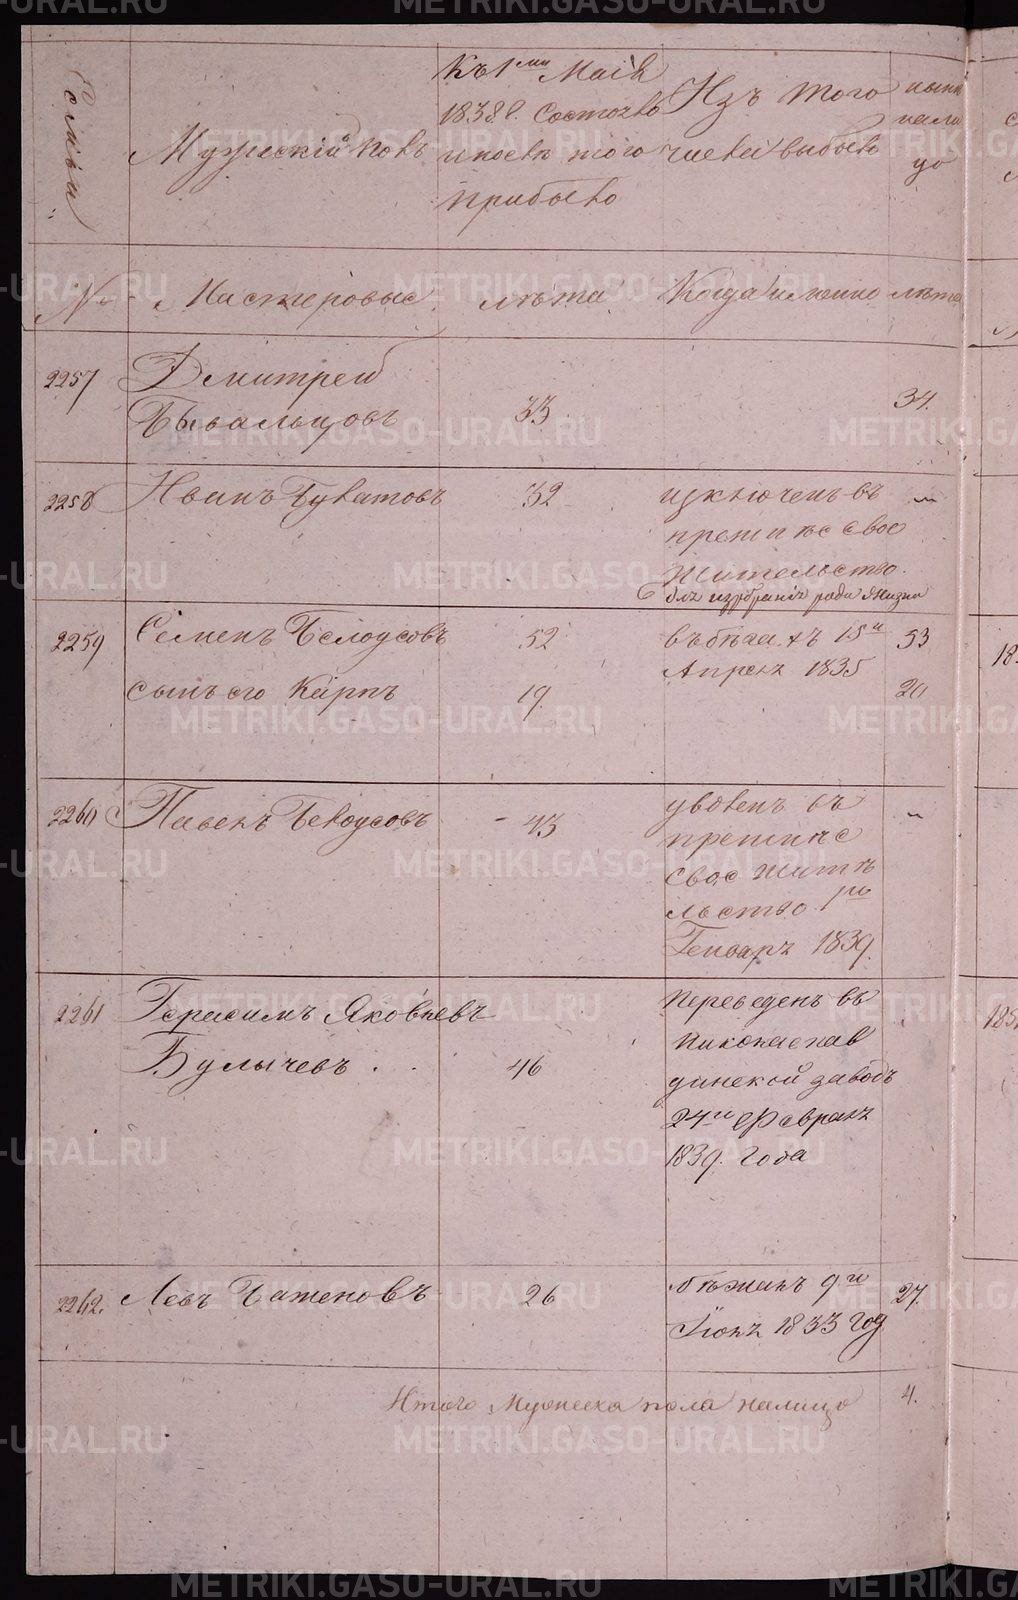 Семьи
Мужескій полъ
Къ 1му Маія
1838 г. состояло
и послѣ того
прибыло
Изъ того
числа выбыло
нынѣ
нали
цо
№
Мастеровые
лѣта
Когда именно
лѣта
2257
Дмитрей
Бывальцовъ
33
34.
2258
Иванъ Булатовъ
32
изключенъ въ
прежнѣе свое
жительство.
для избранія рода жизни
2259
Семенъ Белоусовъ
52
въ бѣгахъ 15и
53
Апреля 1835
сынъ его Карпъ
19.
20
2260
Павелъ Белоусовъ
43
уволенъ въ
прежнѣе
свое жите
льство 1го
Генваря 1839.
2261
Герасимъ Яковлевъ
Булычевъ
46
Переведенъ въ
Николаепав
динской заводъ
24и Февраля
1839. года
2262.
Левъ Баженовъ
26
бѣжалъ 9го
27.
Іюня 1833 год
Итого Мужеска пола налицо
4.